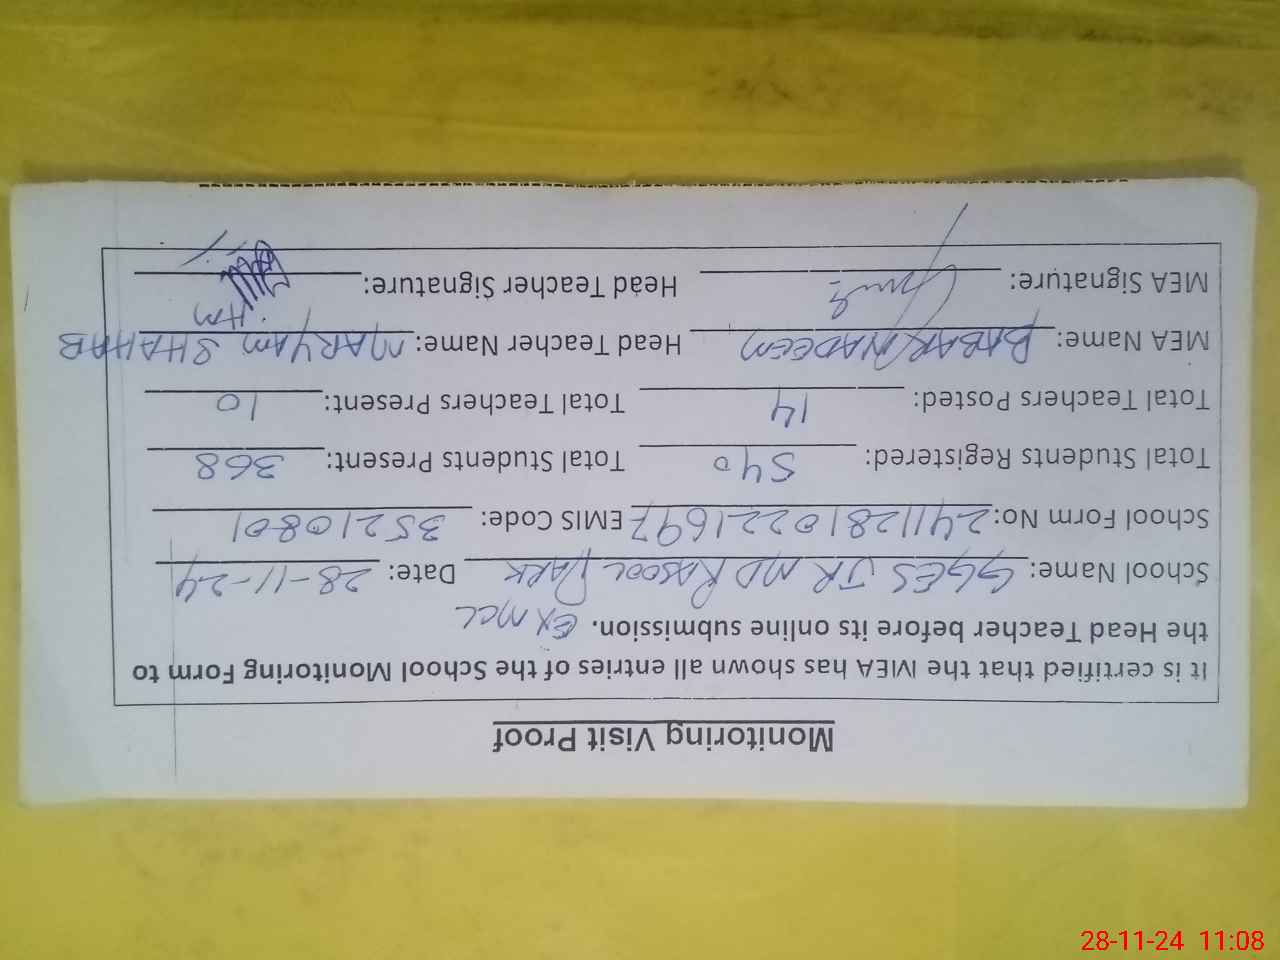 Monitoring Visit Proof
It is certified that the MEA has shown all entries of the School Monitoring Form to
the Head Teacher before its online submission. EX MCL
School Name: GGES JR MD RASOOL PARK Date: 28-11-24
School Form No: 24112810221697 EMIS Code: 35210801
Total Students Registered: 540 Total Students Present: 368
Total Teachers Posted: 14 Total Teachers Present: 10
MEA Name: BABAR NADEEM Head Teacher Name: MARYAM SHAHAB
HM
MEA Signature: Head Teacher Signature:
28-11-24 11:08